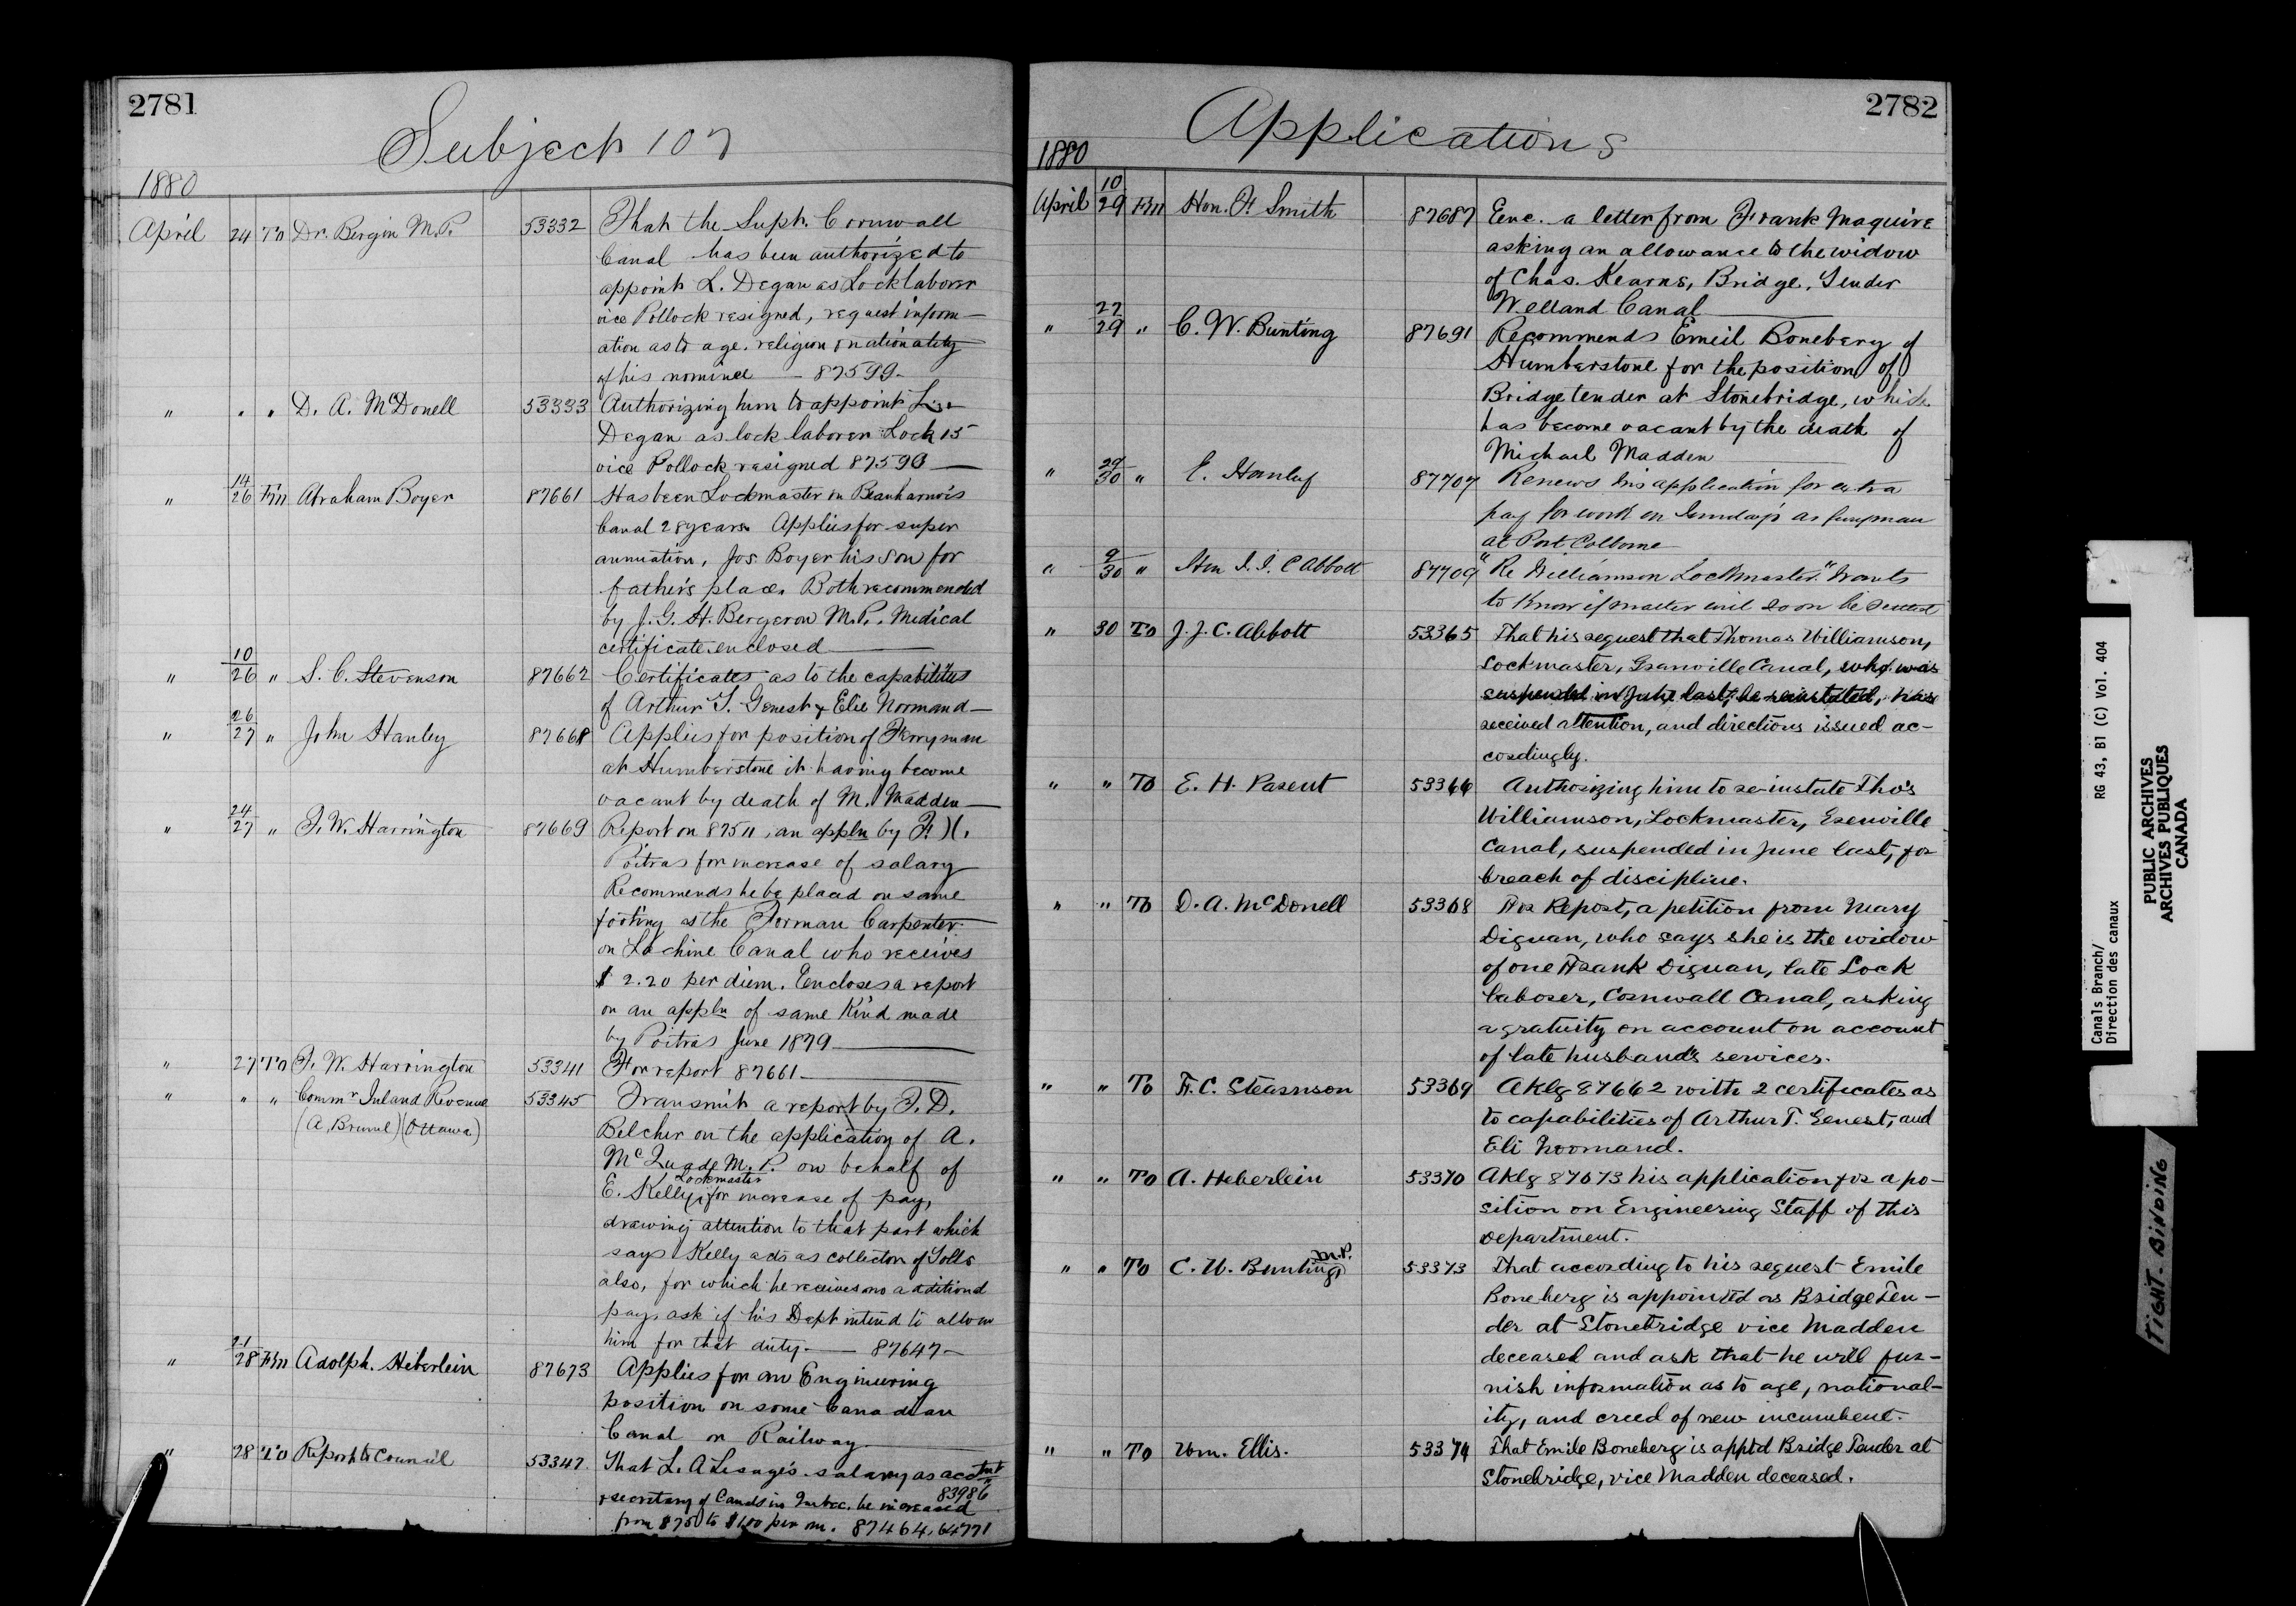 2781
Subject 107
1880
April 24 To Dr. Bergin M.P. 53332 That the Supt. Cornwall
Canal has been authorized to
appoint L. Degan as Lock laborer
vice Pollock resigned, request inform-
ation as to age, religion & nationality
of his nominee — 87599 —
" " " D. A. McDonell 53333 Authorizing him to appoint
Degan as lock laborer Lock 15
vice Pollock resigned 87590 —
" 14/26 Fm Abraham Boyer 87661 Has been Lockmaster on Beauharnois
Canal 28 years. Applies for super
annuation, Jos. Boyer his son for
father's place. Both recommended
by J. G. H. Bergeron M.P. Medical
certificate enclosed —
" 10/26 " S. C. Stevenson 87662 Certificates as to the capabilities
of Arthur T. Genest & Elie Normand —
" 26/27 " John Stanley 87668 Applies for position of Ferryman
at Humberstone it having become
vacant by death of M. Madden —
" 24/27 " F. W. Harrington 87669 Report on 87511, an appln by F. X.
Poitras for increase of salary
Recommends he be placed on same
footing as the Forman Carpenter
on Lachine Canal who receives
$2.20 per diem. Encloses a report
on an appln of same kind made
by Poitras June 1879 —
" 27 To F. W. Harrington 53341 For report 87661 —
" " " Commr Inland Revenue 53345 Transmit a report by F. D.
(A. Brunel) (Ottawa) Belcher on the application of A.
McQuade M.P. on behalf of
Lockmaster
E. Kelly, for increase of pay,
drawing attention to that part which
says Kelly acts as collector of Tolls
also, for which he receives no additional
pay, ask if his Dept intend to allow
him for that duty. — 87647 —
" 21/28 Fm Adolph. Heberlein 87673 Applies for an Engineering
position on some Canadian
Canal or Railway —
" 28 To Report to Council 53347 That L. A Lesage's salary as acctnt
83986
& secretary of Canals in Quebec, be increased
from $750 to $1100 per an. 87464, 64771
2782
Applications
1880
April 10/29 Fm Hon. F. Smith 87687 Enc. a letter from Frank Maguire
asking an allowance to the widow
of Chas. Kearns, Bridge Tender
Welland Canal —
" 27/29 " C. W. Bunting 87691 Recommends Emeil Boneberg of
Humberstone for the position of
Bridge tender at Stonebridge, which
has become vacant by the death of
Michael Madden —
" 29/30 " E. 87707 Renews his application for extra
pay for work on Sundays as
at Port Colborne
" 9/30 " Hon J. J. C Abbott 87709 "Re Williamson Lockmaster." Wants
to know if matter will soon be settled
" 30 To J. J. C. Abbott 53365 That his request that Thomas Williamson,
Lockmaster, Grenville Canal, who was
suspended in June last, be reinstated, has
received attention, and directions issued ac-
cordingly.
" " To E. H. Parent 53366 Authorizing him to re-instate Tho's
Williamson, Lockmaster, Grenville
Canal, suspended in June last, for
breach of discipline.
" " To D. A. McDonell 53368 For Report, a petition from Mary
Diguan, who says she is the widow
of one Frank Diguan, late Lock
laborer, Cornwall Canal, asking
a gratuity on account on account
of late husband's services.
" " To F. C. Stearnson 53369 Aklg 87662 with 2 certificates as
to capabilities of Arthur T. Genest, and
Eli Normand.
" " To A. Heberlein 53370 Aklg 87673 his application for a po-
sition on Engineering Staff of this
department.
" " To C. W. Bunting M.P. 53373 That according to his request Emile
Boneberg is appointed as Bridge Ten-
der at Stonebridge vice Madden
deceased and ask that he will fur-
nish information as to age, national-
ity, and creed of new incumbent.
" " To Wm. Ellis. 53374 That Emile Boneberg is apptd Bridge Tender at
Stonebridge, vice Madden deceased.
Canals Branch/
Direction des canaux
RG 43, B1 (C) Vol. 404
PUBLIC ARCHIVES
ARCHIVES PUBLIQUES
CANADA
TIGHT BINDING